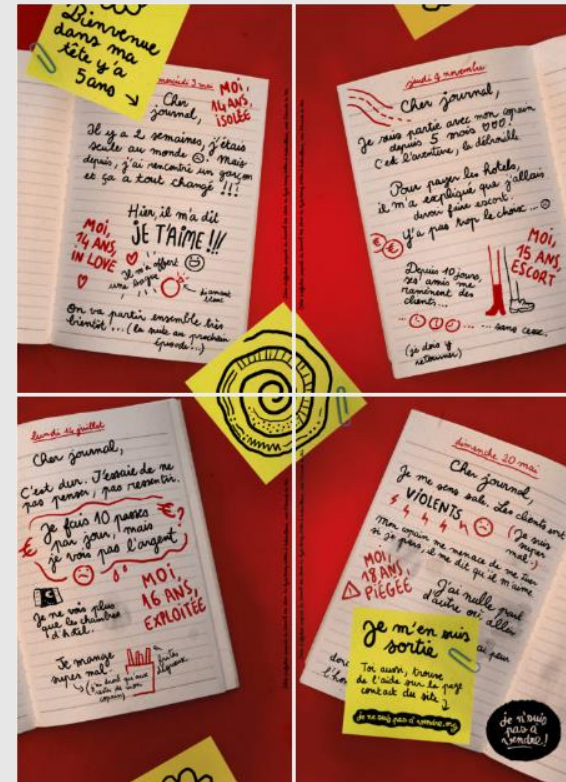 Bienvenue
dans ma
tête y'a
5 ans
mercredi 3 mai
Cher
journal,
MOI,
14 ANS,
ISOLÉE
Il y a 2 semaines, j'étais
seule au monde. Mais
depuis, j'ai rencontré un garçon
et ça a tout changé !!!
Hier, il m'a dit
JE T'AIME !!!
MOI,
14 ANS,
IN LOVE
Il m'a offert
une bague
diamant
On va partir ensemble très
bientôt ... (la suite au prochain
épisode...)
jeudi 9 novembre
Cher journal,
Je suis partie avec mon copain
depuis 5 mois
C'est l'aventure, la débrouille
Pour payer les hotels,
il m'a expliqué que j'allais
devoir faire escort.
Y'a pas trop le choix ...
€ €
MOI,
15 ANS,
ESCORT
Depuis 10 jours,
ses amis me
ramènent des
clients...
... sans cesse.
(je dois y
retourner)
lundi 14 juillet
Cher journal,
C'est dur. J'essaie de ne
pas penser, pas ressentir.
€ Je fais 10 passes €?
par jour, mais
je vois pas l'argent
MOI,
16 ANS,
EXPLOITÉE
Je ne vois plus
que les chambres
d'hotel.
Je mange
super mal.
frites
copain)
dimanche 20 mai
Cher journal,
Je me sens sale. Les clients sont
VIOLENTS
(Je suis
super
mal.)
Mon copain me menace de me tuer
si je pars, il me dit qu'il m'aime
MOI,
18 ANS,
PIÉGÉE
J'ai nulle part
d'autre où aller
ai peur
Je m'en suis
sortie
Toi aussi, trouve
de l'aide sur la page
contact du site
je ne suis pas à vendre.org
Je n'suis
pas à
vendre!